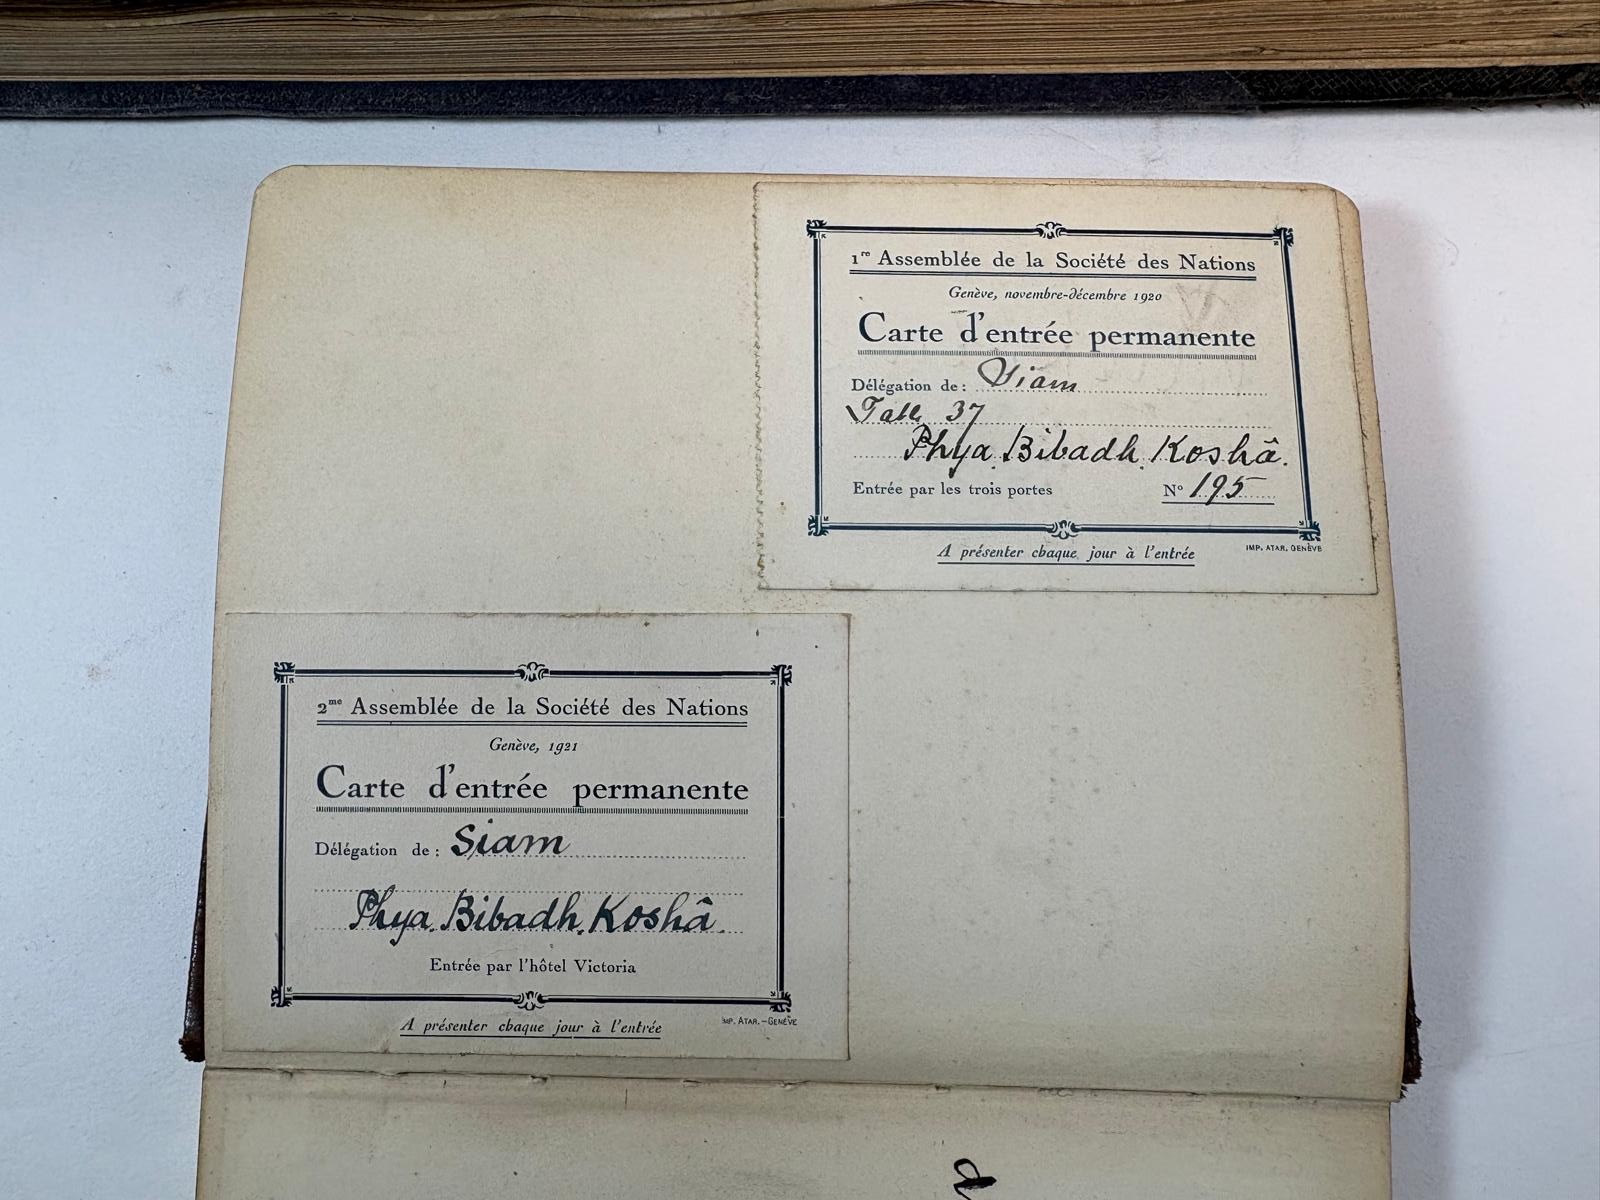 1re Assemblée de la Société des Nations
Genève, novembre-décembre 1920
Carte d'entrée permanente
Délégation de : Siam
Table 37
Phya Bibadh Koshâ.
Entrée par les trois portes No 195
A présenter chaque jour à l'entrée
IMP. ATAR. GENÈVE
2me Assemblée de la Société des Nations
Genève, 1921
Carte d'entrée permanente
Délégation de : Siam
Phya Bibadh Koshâ
Entrée par l'hôtel Victoria
A présenter chaque jour à l'entrée
IMP. ATAR.–GENÈVE